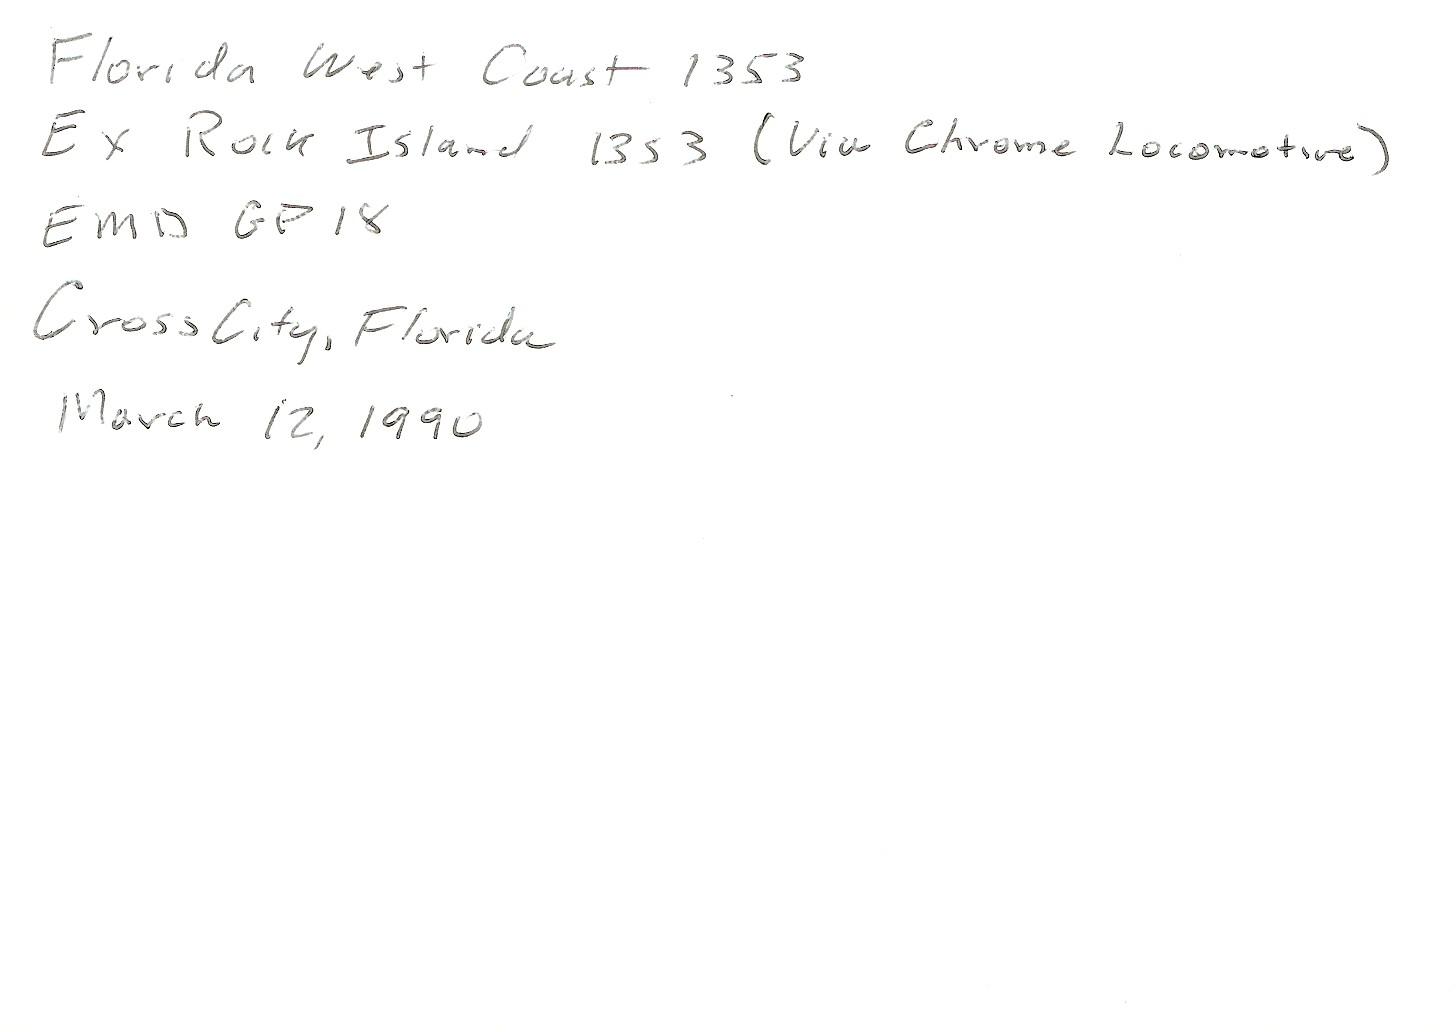 Florida West Coast 1353
Ex Rock Island 1353 (Via Chrome Locomotive)
EMD GP18
Cross City, Florida
March 12, 1990